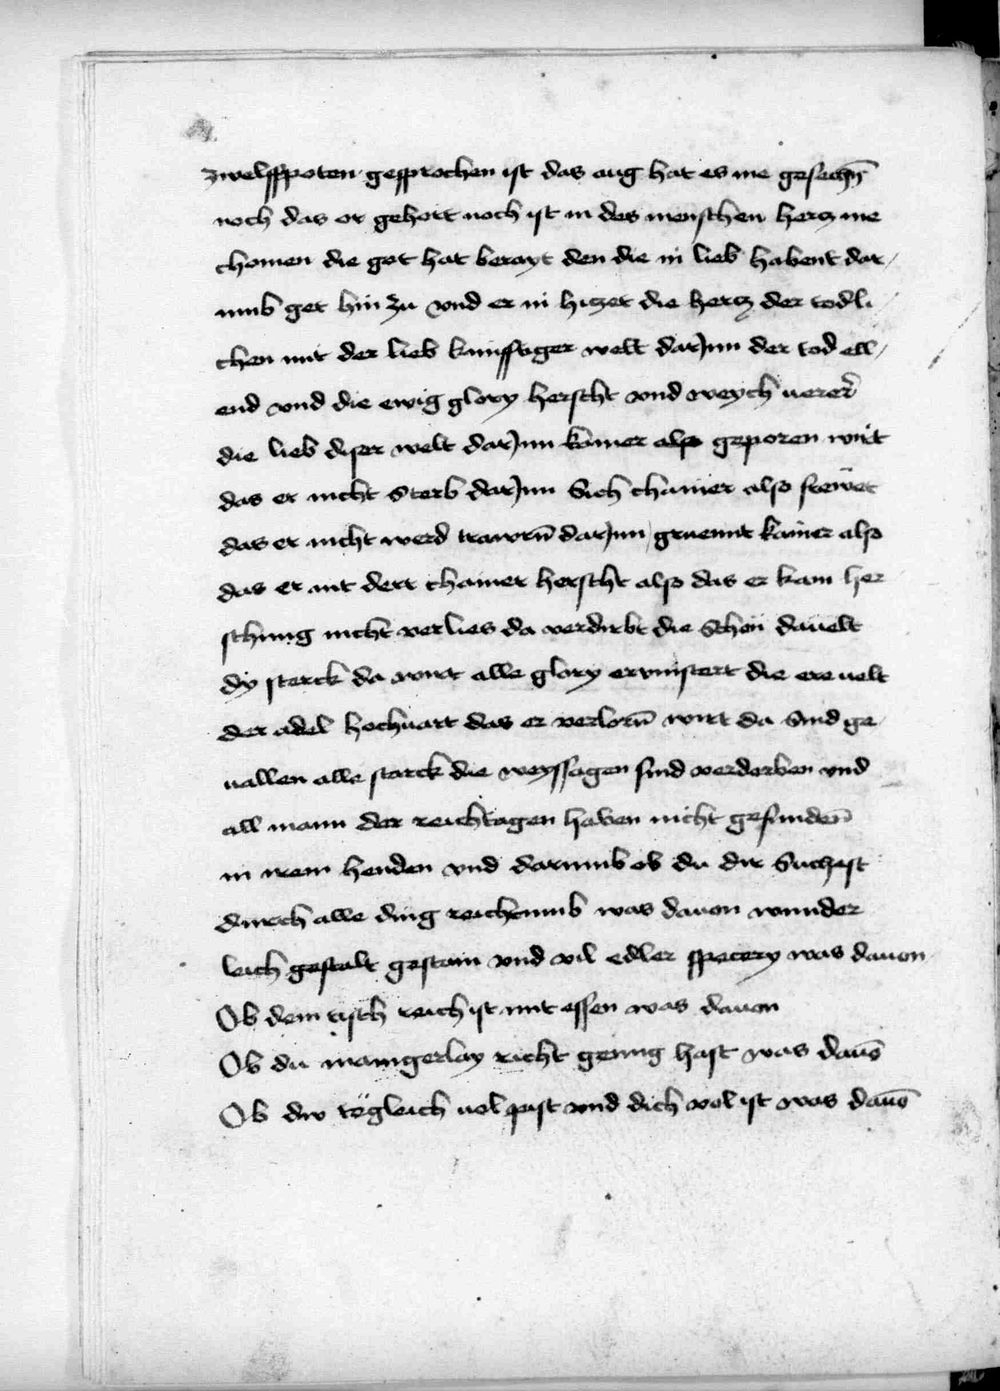 zwelffpoten gesprochen ist das aug hat es nie gesechn̄
noch das or gehort noch ist in des menschen hercz nie
chomen die got hat berayt den die in lieb habent dar
umb get hin zu vnd er in hiczet die hercz der todli
chen mit der lieb kunfftiger welt darJnn der tod ell
end vnd die ewig glory herscht vnd weych
die lieb diser welt darJnn kainer also geporen wirt
das er nicht sterb darJnn Sich chainer also frewet
das er nicht werd trawrn̄ darJnn kainer also
das er mit derr chainer herscht also das er kain her
schung nicht verlies da verdirbt die Schon
dy sterck da wirt alle glory die ere uelt
der adel hochuart das er verlorn̄ wirt da Sind ge
uallen alle starck die weyssagen sind verdorben vnd
all mann der reichtagen haben nicht gefunden̄
in iren henden vnd darumb ob du dir Suchest
durch alle ding reichtumb was dauon wunder
leich gestalt gestain vnd vil edler specery was dauon
Ob dein tisch reich ist mit essen was dauon
Ob du manigerlay richt genug hast was dauō
Ob dw tëgleich uol pist vnd dich wol ist was dauō